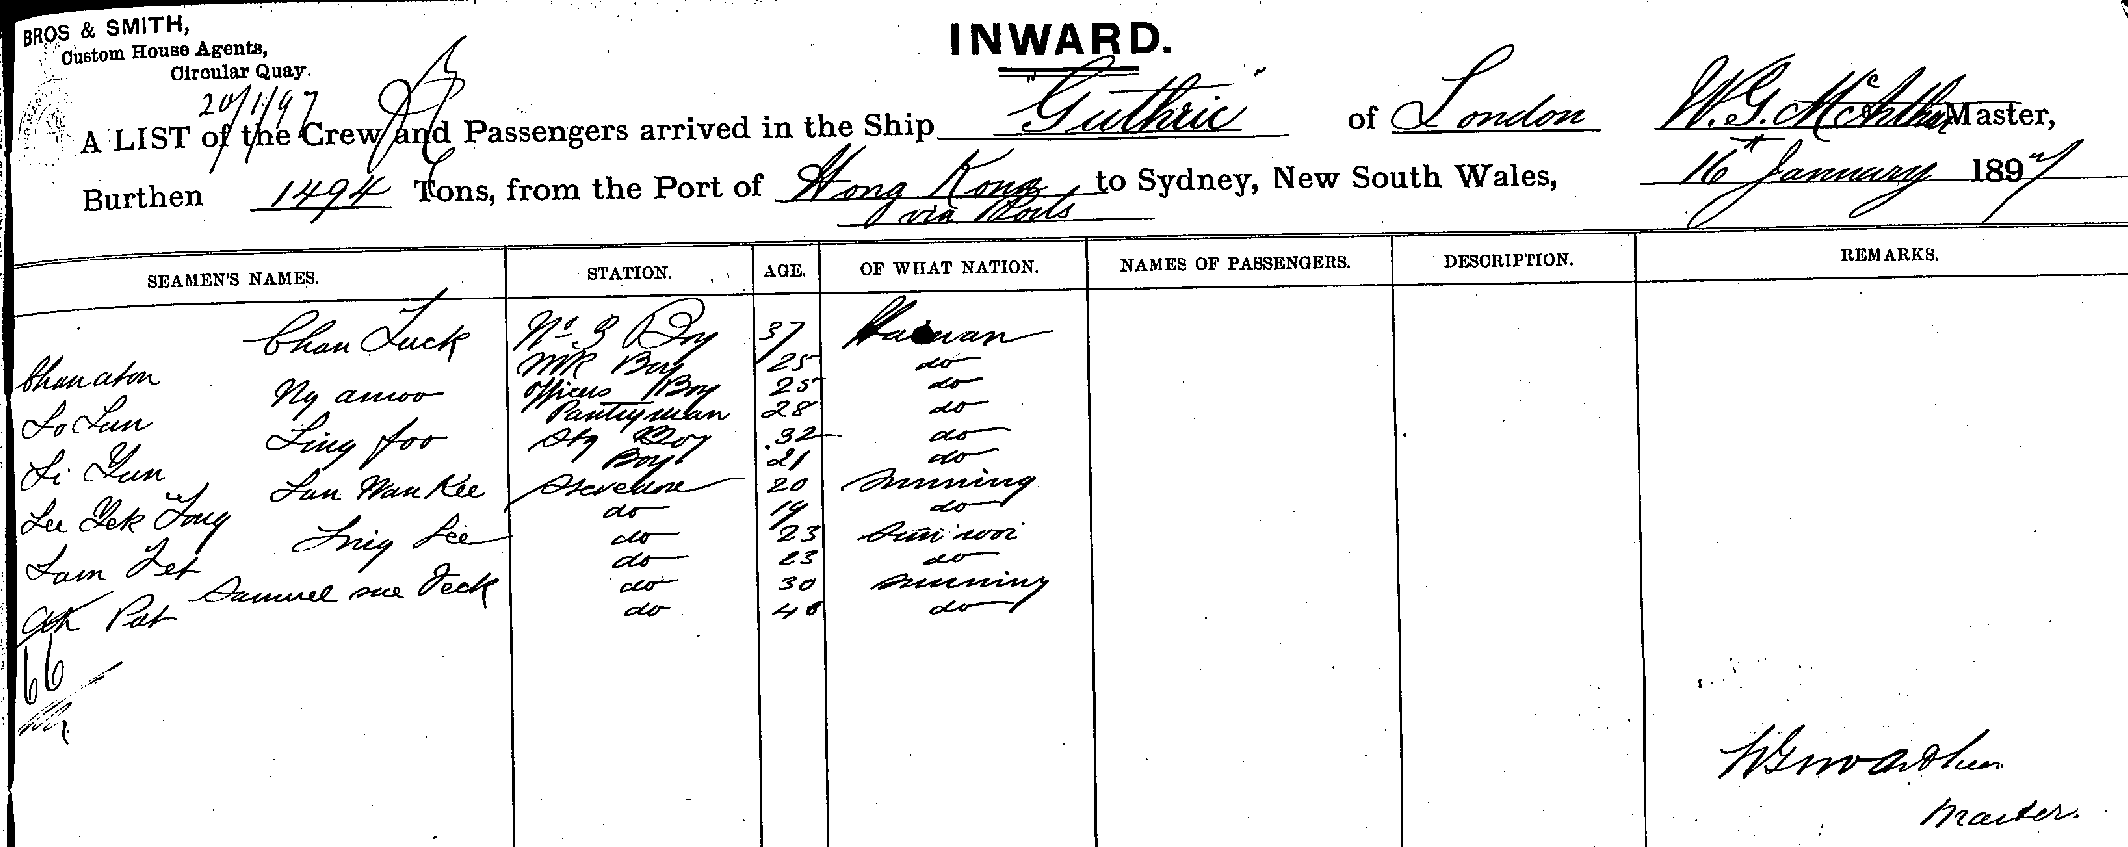 BROS & SMITH,
Custom House Agents,
Circular Quay.
20/1/97
INWARD.
A LIST of the Crew and Passengers arrived in the Ship "Guthrie" of London W. G. McArthur Master,
Burthen 1494 Tons, from the Port of Hong Kong to Sydney, New South Wales, 16 January 1897
via Ports
SEAMEN'S NAMES. STATION. AGE. OF WHAT NATION. NAMES OF PASSENGERS. DESCRIPTION. REMARKS.
Chan Tuck No 3 Boy 37
Chan aton Boy 25 do
Ng amoo Officers Boy 25 do
Lo Lun Pantryman 28 do
Ling foo Boy 32 do
Li Yun Boy 21 do
Lan Wan Kee 20 Sunning
Lee Yek Tong do 19 do
Ling Lee do 23 Sun woi
Lam Tet do 23 do
Samuel sue Teck do 30 Sunning
Ack Pat do 40 do
66
Master.